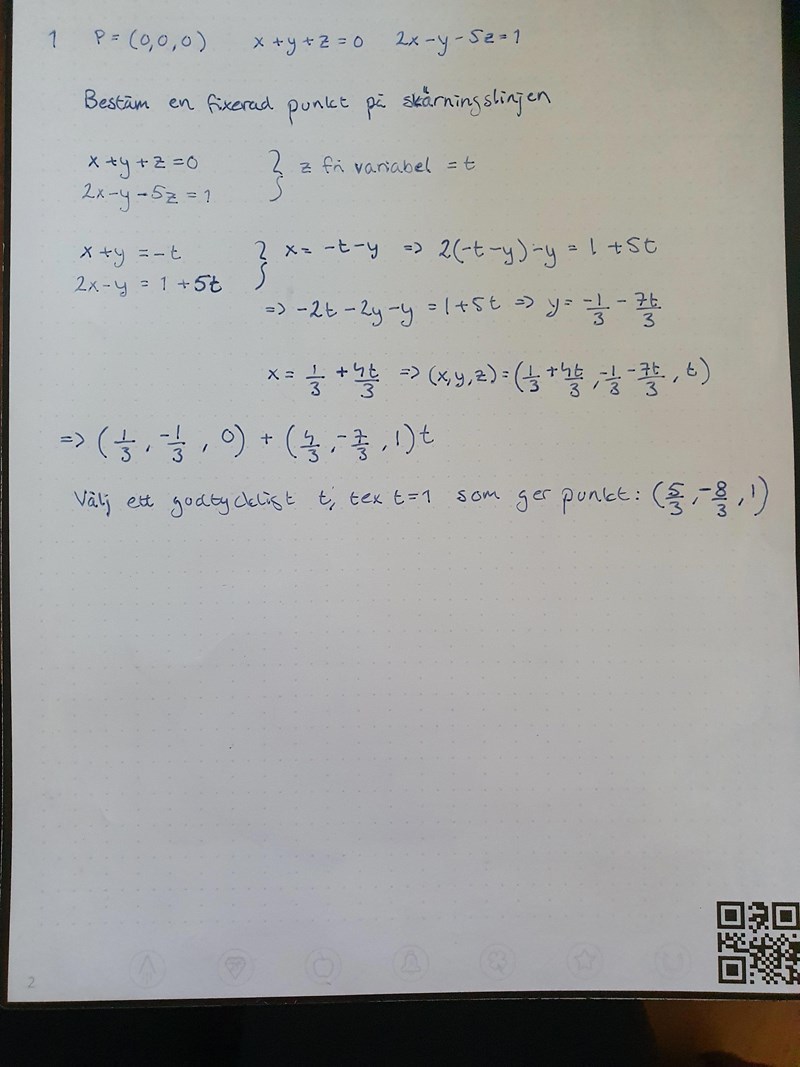 1 P = (0,0,0) x+y+z=0 2x-y-5z=1
Bestäm en fixerad punkt på skärningslinjen
x+y+z=0 } z fri variabel = t
2x-y-5z=1
x+y=-t } x= -t-y => 2(-t-y)-y = 1+5t
2x-y = 1+5t
=> -2t-2y-y = 1+5t => y= -1/3 - 7t/3
x= 1/3 + 4t/3 => (x,y,z)=(1/3 + 4t/3, -1/3 - 7t/3, t)
=> (1/3, -1/3, 0) + (4/3, -7/3, 1)t
Välj ett godtyckligt t, tex t=1 som ger punkt: (5/3, -8/3, 1)
2